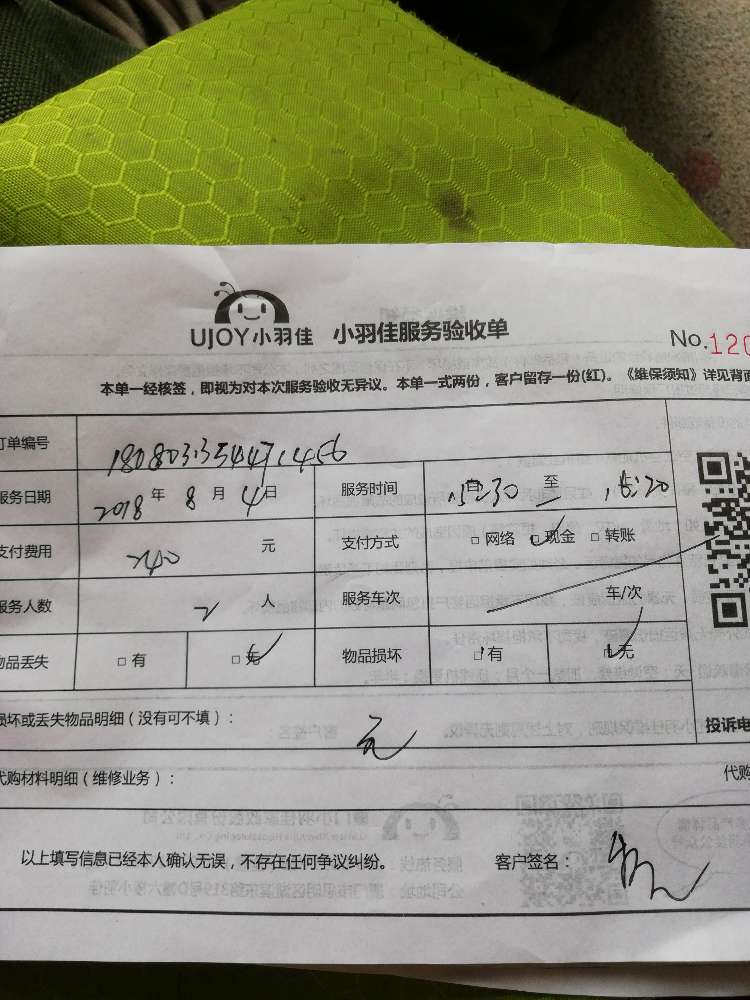 UJOY小羽佳 小羽佳服务验收单
No.120
本单一经核签，即视为对本次服务验收无异议。本单一式两份，客户留存一份(红)。《维保须知》详见背面
订单编号
服务日期 2018 年 8 月 4 日 服务时间 至
支付费用 240 元 支付方式 □ 网络 □ 现金 □ 转账
服务人数 2 人 服务车次 车/次
物品丢失 □ 有 □ 无 物品损坏 □ 有 □ 无
损坏或丢失物品明细（没有可不填）： 无
投诉电
代购材料明细（维修业务）： 代购
以上填写信息已经本人确认无误，不存在任何争议纠纷。 客户签名：